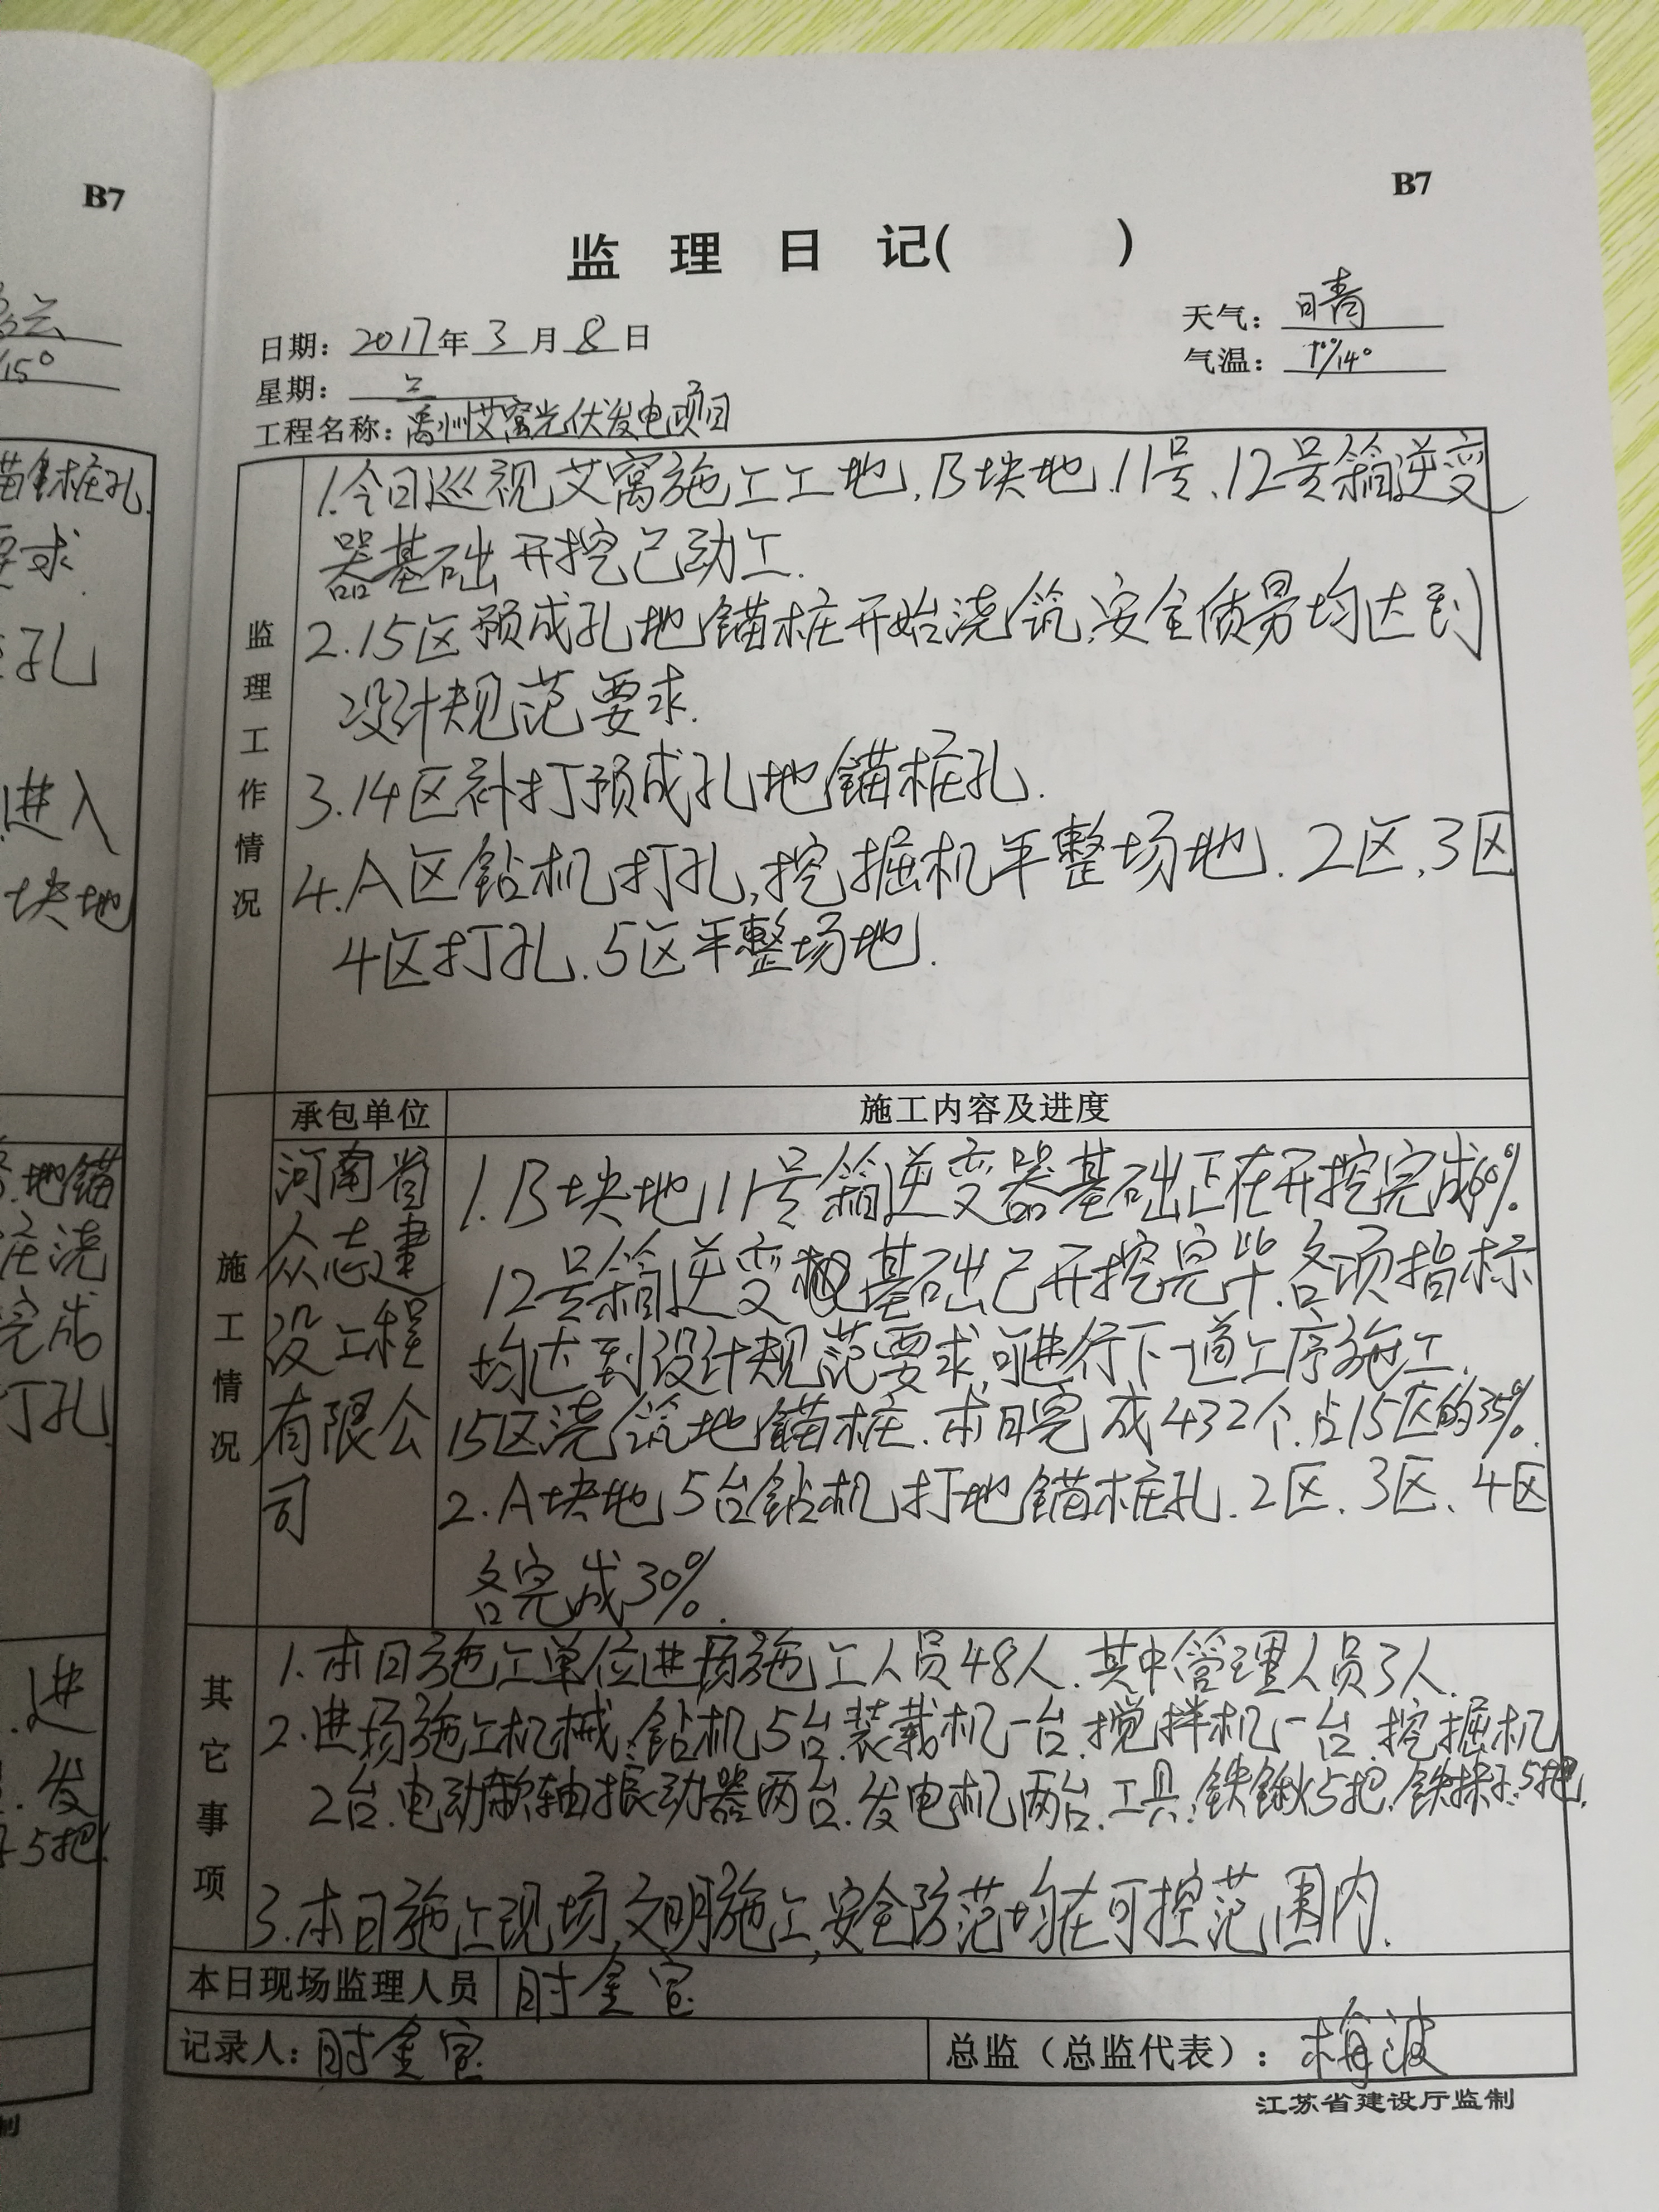 B7
B7
监 理 日 记( )
日期：2017年3月8日
天气：晴
星期：三
气温：1°/14°
工程名称：禹州艾窝光伏发电项目
监理工作情况
1.今日巡视艾窝施工工地,B块地.11号、12号箱逆变
器基础开挖已动工.
2.15区预成孔地锚桩开始浇筑,安全质量均达到
设计规范要求.
3.14区补打预成孔地锚桩孔.
4.A区钻机打孔,挖掘机平整场地.2区.3区
4区打孔.5区平整场地.
承包单位
施工内容及进度
施工情况
河南省
众志建
设工程
有限公
司
1.B块地11号箱逆变器基础正在开挖完成60%.
12号箱逆变基础已开挖完毕.各项指标
均达到设计规范要求,可进行下一道工序施工.
15区浇筑地锚桩.本日完成432个.占15区的35%.
2.A块地5台钻机打地锚桩孔.2区.3区、4区
各完成30%.
其它事项
1.本日施工单位进场施工人员48人.其中管理人员3人.
2.进场施工机械:钻机5台.装载机一台.搅拌机一台.挖掘机
2台.电动软轴振动器两台.发电机两台.工具:铁锹5把.铁抹子5把.
3.本日施工现场,文明施工,安全防范均在可控范围内.
本日现场监理人员 时金宝
记录人：时金宝
总监（总监代表）：梅波
江苏省建设厅监制
15°
锚桩孔.
要求.
孔
进入
块地
地锚
桩浇
完成
打孔
进
发
5把.
制